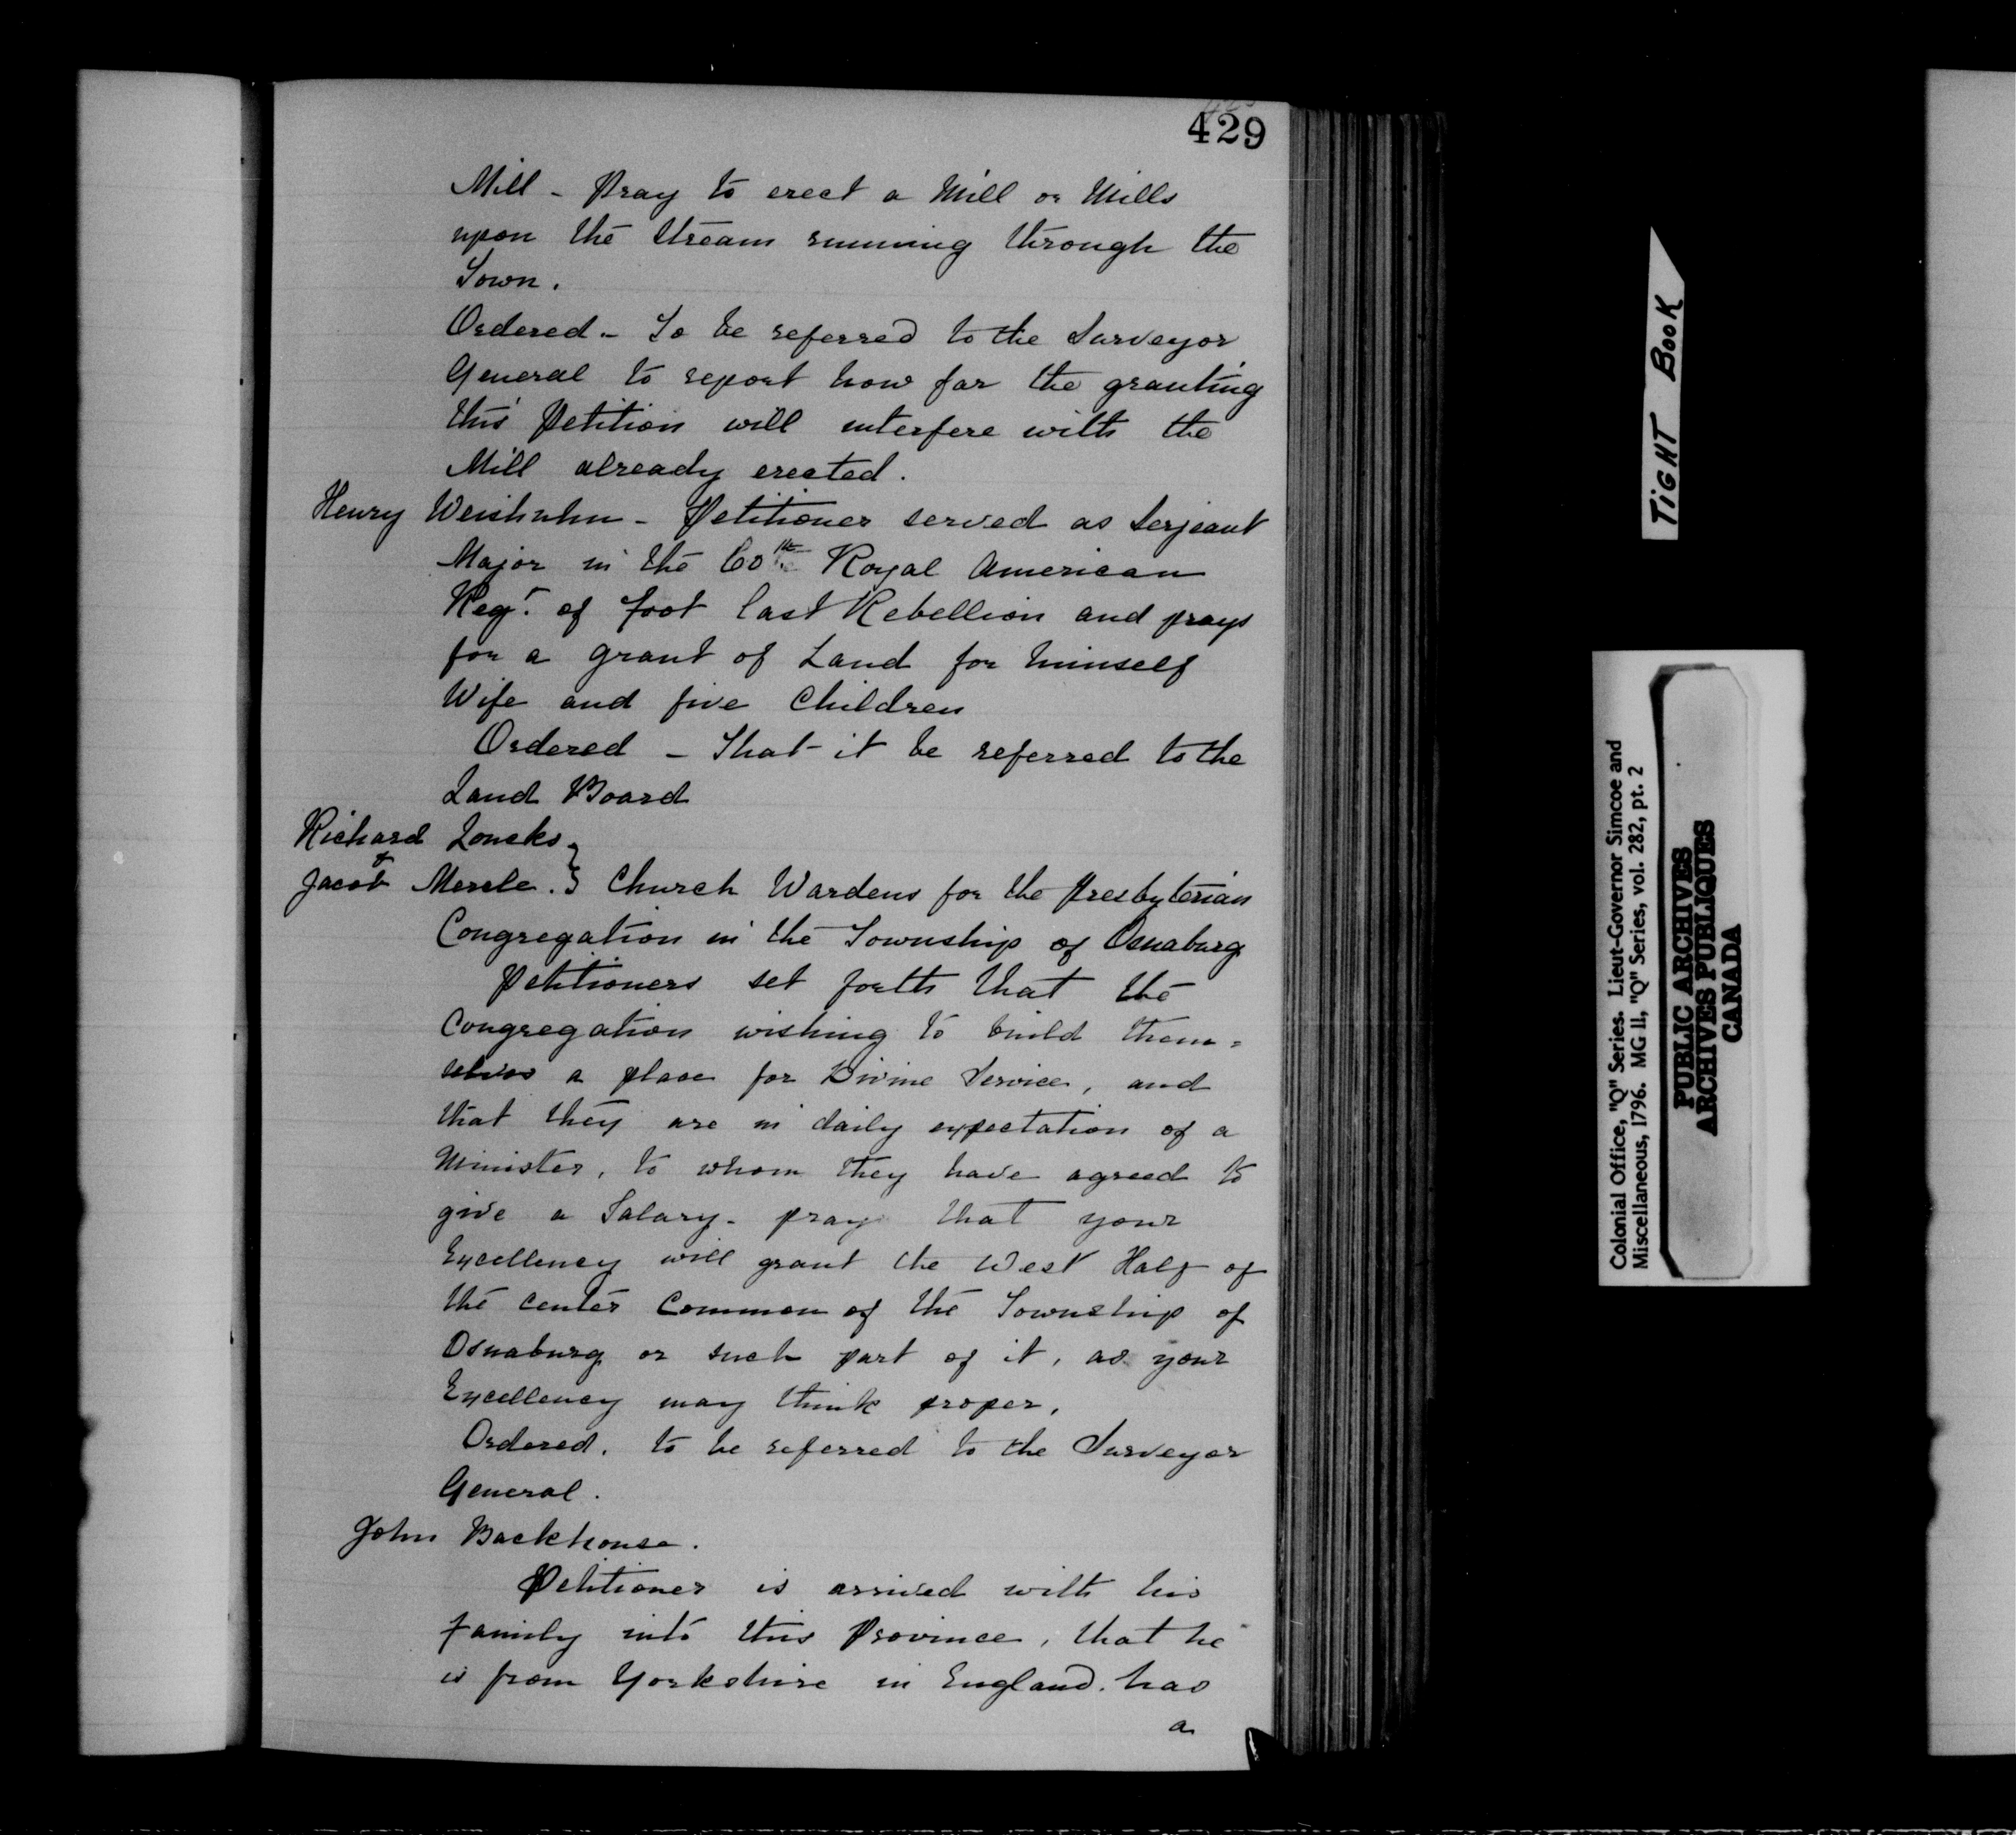 429
Mill - Pray to erect a Mill or Mills
upon the Stream running through the
Town.
Ordered - To be referred to the Surveyor
General to report how far the granting
this Petition will interfere with the
Mill already erected.
Henry Weishuhn - Petitioner served as Serjeant
Major in the 60th Royal American
Regt. of foot last Rebellion and prays
for a grant of Land for himself
Wife and five Children
Ordered - That it be referred to the
Land Board
Richard Loucks
&
Jacob Merele. } Church Wardens for the Presbyterian
Congregation in the Township of Osnaburg
Petitioners set forth that the
Congregation wishing to build them=
selves a place for Divine Service, and
that they are in daily expectation of a
Minister, to whom they have agreed to
give a Salary - pray that your
Excellency will grant the West Half of
the center Common of the Township of
Osnaburg or such part of it, as your
Excellency may think proper,
Ordered. to be referred to the Surveyor
General.
John Backhouse.
Petitioner is arrived with his
family into this Province, that he
is from Yorkshire in England. has
a
TIGHT BOOK
Colonial Office, "Q" Series. Lieut-Governor Simcoe and
Miscellaneous, 1796. MG 11, "Q" Series, vol. 282, pt. 2
PUBLIC ARCHIVES
ARCHIVES PUBLIQUES
CANADA